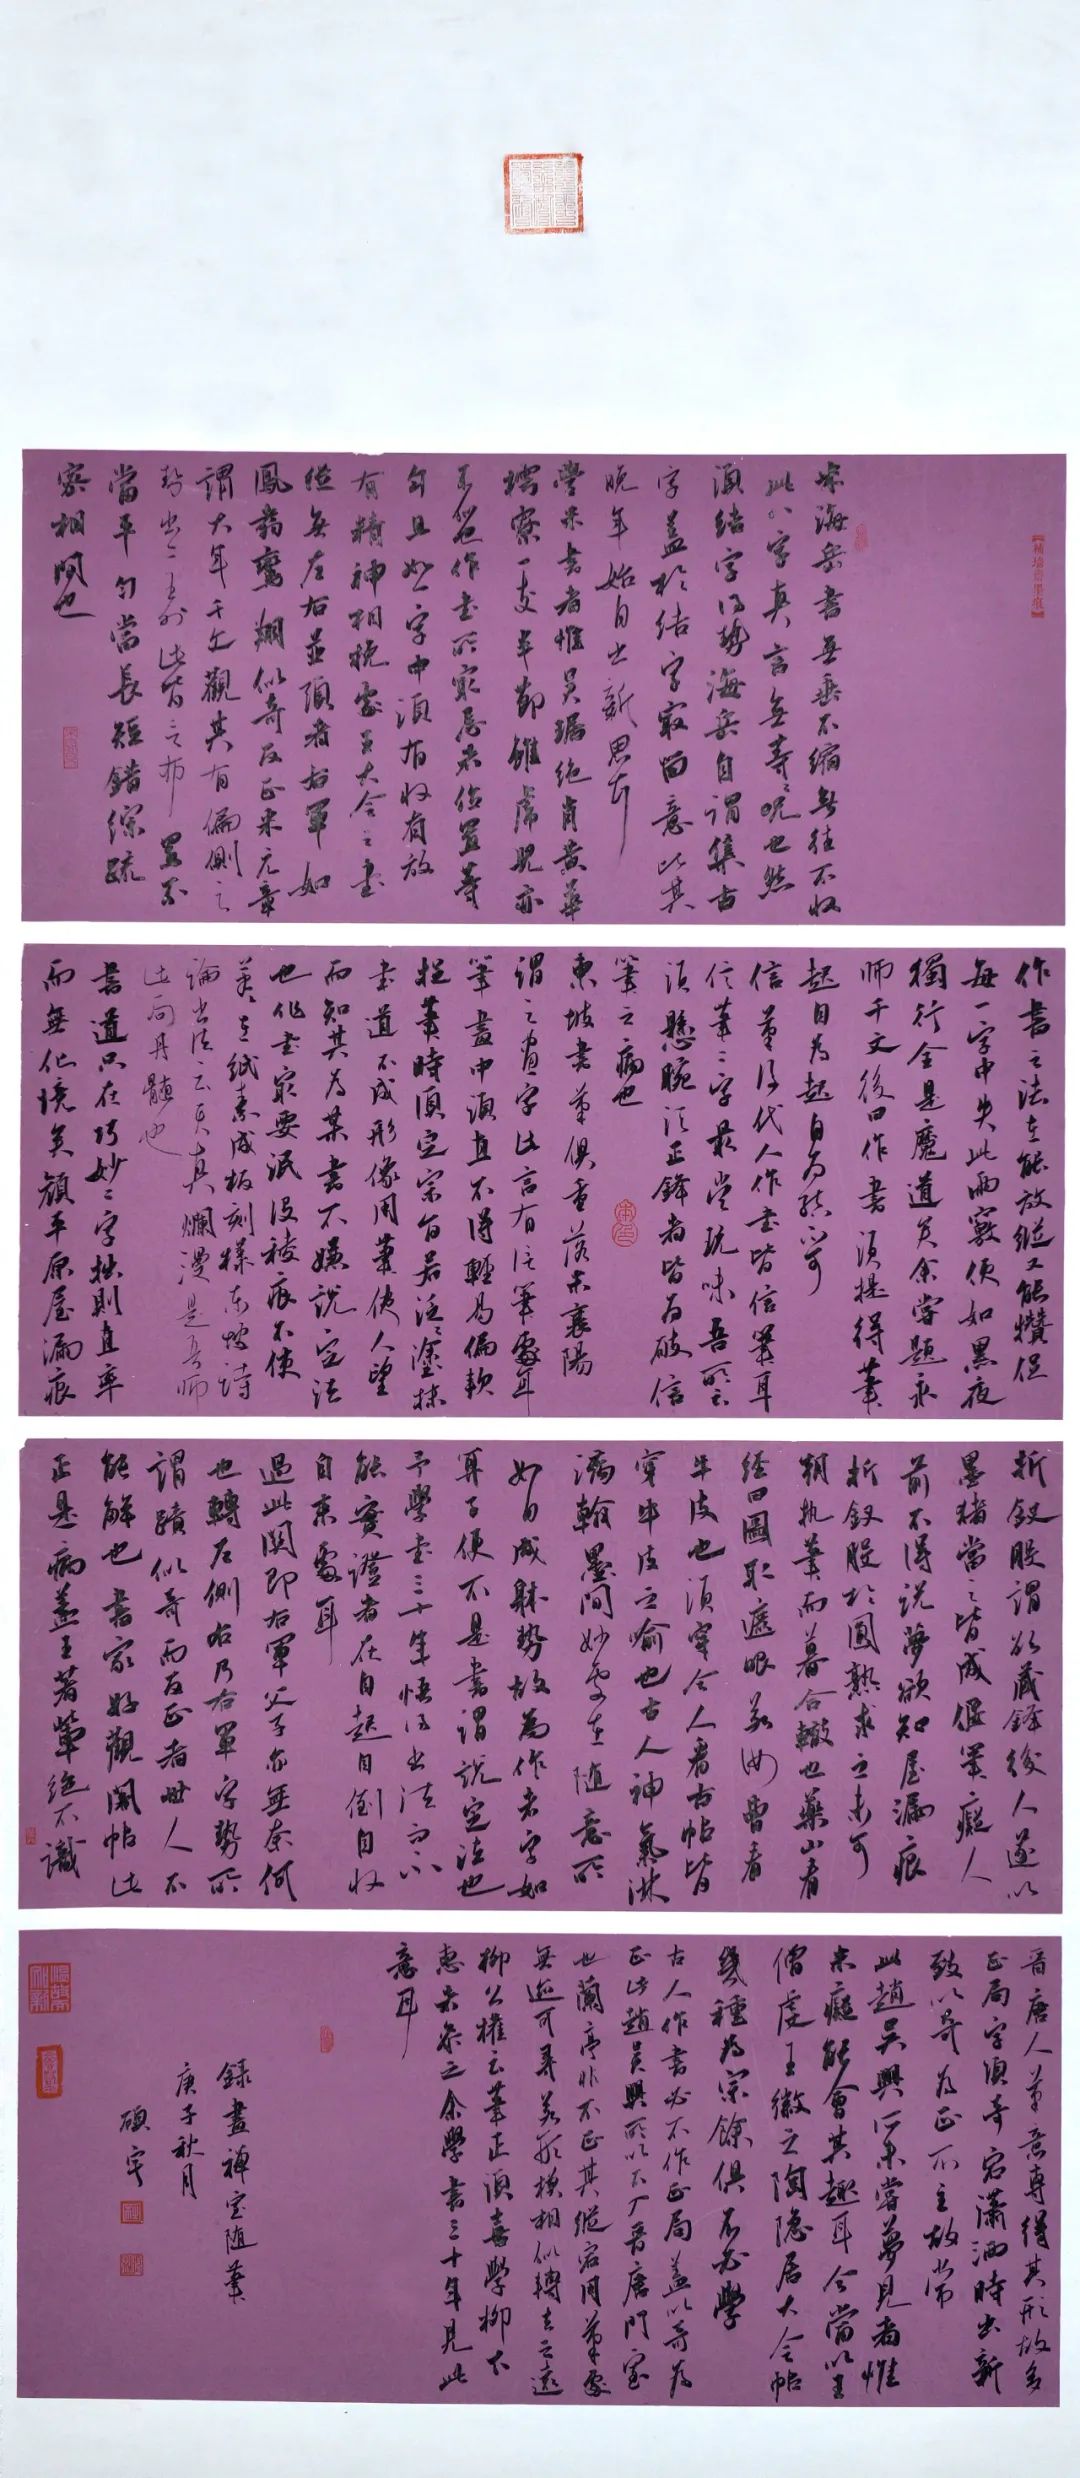 米海岳書無垂不縮無往不收
此八字真言無等等咒也然
須結字得勢海岳自謂集古
字蓋於結字最留意比其
晚年始自出新意耳
學米書者惟吳琚絕肖黃華
樗寮一支半節雖虎兒亦
不似也作書所最忌者位置等
勻且如一字中須有收有放
有精神相挽處王大令之書
從無左右並頭者右軍如
鳳翥鸞翔似奇反正米元章
謂大年千文觀其有偏側之
勢出二王外此皆言布置不
當平勻當長短錯綜疏
密相間也
作書之法在能放縱又能攢促
每一字中失此兩竅便如黑夜
獨行全是魔道矣余嘗題永
師千文後曰作書須提得筆
起自為起自為結不可
信筆後代人作書皆信筆耳
信筆二字最當玩味吾所云
須懸腕須正鋒者皆為破信
筆之病也
東坡書筆俱重落米襄陽
謂之畫字此言有信筆處耳
筆畫中須直不得輕易偏軟
捉筆時須定宗旨若泛泛塗抹
書道不成形像用筆使人望
而知其為某書不嫌說定法
也作書最要泯沒稜痕不使
筆筆在紙素成板刻樣東坡詩
論書法云天真爛漫是吾師
此局丹髓也
書道只在巧妙二字拙則直率
而無化境矣顏平原屋漏痕
折釵股謂欲藏鋒後人遂以
墨豬當之皆成偃筆癡人
前不得說夢欲知屋漏痕
折釵股於圓熟求之未可
朝執筆而暮合轍也藥山看
經曰圖取遮眼若汝曹看
牛皮也須穿今人看古帖皆
穿牛皮之喻也古人神氣淋
漓翰墨間妙處在隨意所
如自成體勢故為作者字如
算子便不是書謂說定法也
予學書三十年悟得書法而不
能實證者在自起自倒自收
自束處耳
過此關即右軍父子亦無奈何
也轉左側右乃右軍字勢所
謂蹟似奇而反正者世人不
能解也書家好觀閣帖此
正是病蓋王著輩絕不識
晉唐人筆意專得其形故多
正局字須奇宕瀟洒時出新
致以奇為正不主故常
此趙吳興所未嘗夢見者惟
米癡能會其趣耳今當以王
僧虔王徽之陶隱居大令帖
幾種為宗餘俱不必學
古人作書必不作正局蓋以奇為
正此趙吳興所以不入晉唐門室
也蘭亭非不正其縱宕用筆處
無迹可尋若形模相似轉去之遠
柳公權云筆正須善學柳下
惠者參之余學書三十年見此
意耳
錄畫禪室隨筆
庚子秋月
碩宇